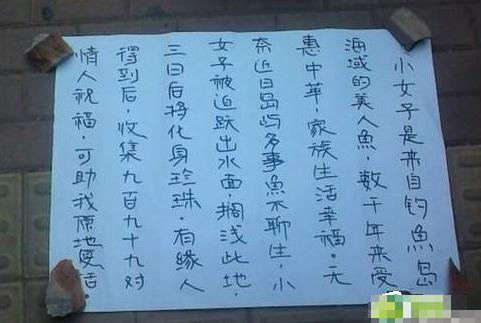 小女子是来自钓魚岛
海域的美人魚，数千年来受
惠中华，家族生活幸福。无
奈近日岛屿多事魚不聊生，小
女子被迫跃出水面，搁浅此地，
三日后将化身珍珠，有缘人
得到后，收集九百九十九对
情人祝福，可助我原地复活。